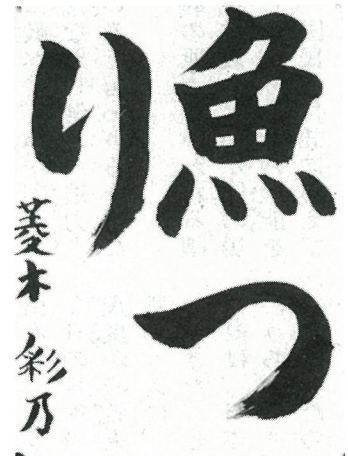 魚つ
り
菱木 彩乃